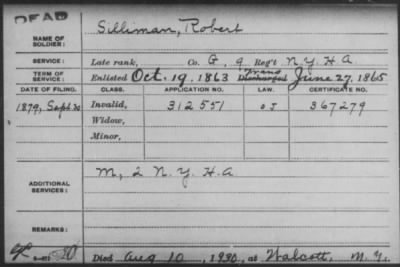 DEAD
NAME OF SOLDIER: Silliman, Robert
SERVICE: Late rank, Co. G, 9 Reg't N.Y.H.A
TERM OF SERVICE: Enlisted Oct. 19, 1863 Trans Discharged June 27, 1865
DATE OF FILING. CLASS. APPLICATION NO. LAW. CERTIFICATE NO.
1879, Sept. 20 Invalid, 312551 367279
Widow,
Minor,
ADDITIONAL SERVICES: M, 2 N.Y. H.A
REMARKS:
Died Aug 10, 1920, at Walcott, N.Y.